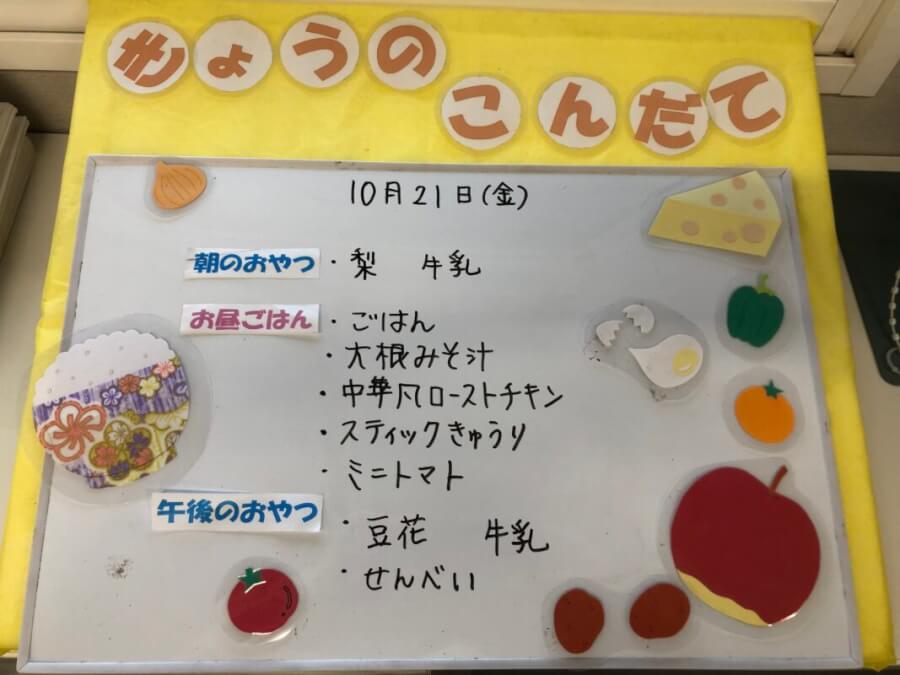 きょうの
こんだて
10月21日(金)
朝のおやつ ・梨 牛乳
お昼ごはん ・ごはん
・大根みそ汁
・中華風ローストチキン
・スティックきゅうり
・ミニトマト
午後のおやつ ・豆花 牛乳
・せんべい